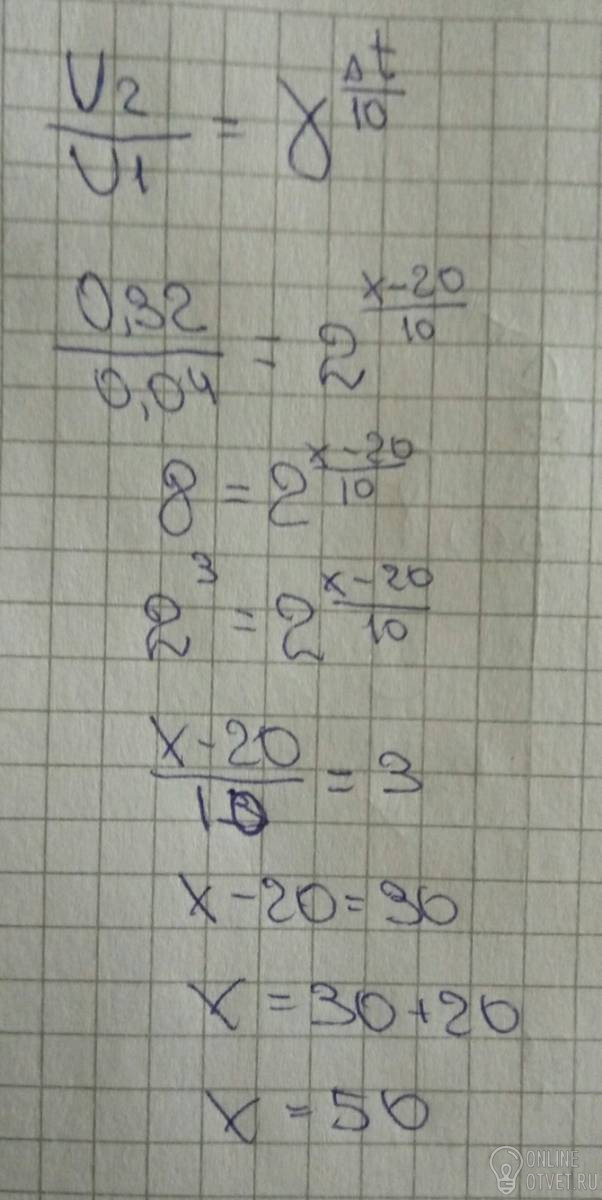 υ2/υ1 = γ^(Δt/10)
0,32/0,04 = 2^((x-20)/10)
8 = 2^((x-20)/10)
2^3 = 2^((x-20)/10)
(x-20)/10 = 3
x-20=30
x=30+20
x=50
ONLINE
OTVET.RU